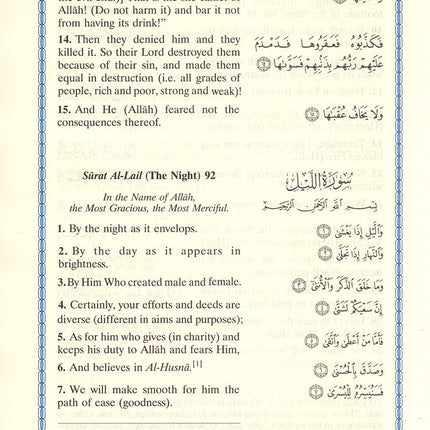 Allâh! (Do not harm it) and bar it not
from having its drink!"
14. Then they denied him and they
killed it. So their Lord destroyed them
because of their sin, and made them
equal in destruction (i.e. all grades of
people, rich and poor, strong and weak)!
فَكَذَّبُوهُ فَعَقَرُوهَا فَدَمْدَمَ
عَلَيْهِمْ رَبُّهُم بِذَنۢبِهِمْ فَسَوَّىٰهَا ١٤
15. And He (Allâh) feared not the
consequences thereof.
وَلَا يَخَافُ عُقْبَٰهَا ١٥
Sûrat Al-Lail (The Night) 92
سُورَةُ اللَّيْلِ
In the Name of Allâh,
the Most Gracious, the Most Merciful.
بِسْمِ اللَّهِ الرَّحْمَٰنِ الرَّحِيمِ
1. By the night as it envelops.
وَالَّيْلِ إِذَا يَغْشَىٰ ١
2. By the day as it appears in
brightness.
وَالنَّهَارِ إِذَا تَجَلَّىٰ ٢
3. By Him Who created male and female.
وَمَا خَلَقَ الذَّكَرَ وَالْأُنثَىٰ ٣
4. Certainly, your efforts and deeds are
diverse (different in aims and purposes);
إِنَّ سَعْيَكُمْ لَشَتَّىٰ ٤
5. As for him who gives (in charity) and
keeps his duty to Allâh and fears Him,
فَأَمَّا مَنْ أَعْطَىٰ وَاتَّقَىٰ ٥
6. And believes in Al-Husnâ.[1]
وَصَدَّقَ بِالْحُسْنَىٰ ٦
7. We will make smooth for him the
path of ease (goodness).
فَسَنُيَسِّرُهُۥ لِلْيُسْرَىٰ ٧